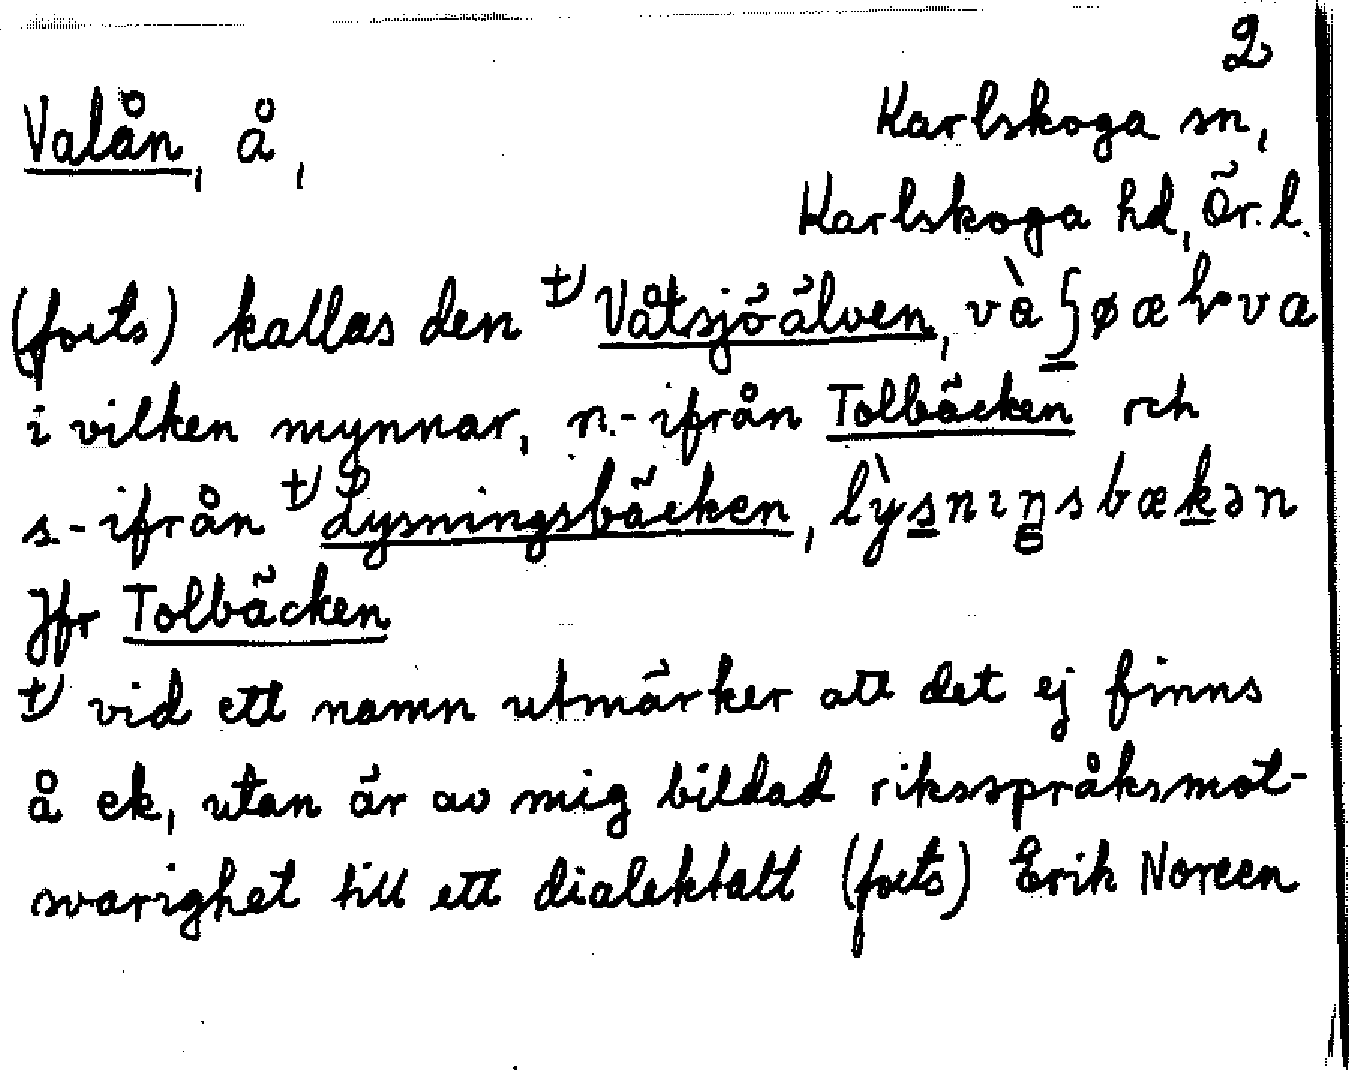 2
Valån, å, Karlskoga sn,
Karlskoga hd, Ör. l.
(forts) kallas den t) Våtsjöälven,
i vilken mynnar, n.-ifrån Tolbäcken och
s-ifrån t) Lysningsbäcken, lỳsnıŋsbækən
Jfr Tolbäcken
t) vid ett namn utmärker att det ej finns
å ek, utan är av mig bildad riksspråksmot-
svarighet till ett dialektalt (forts) Erik Noreen